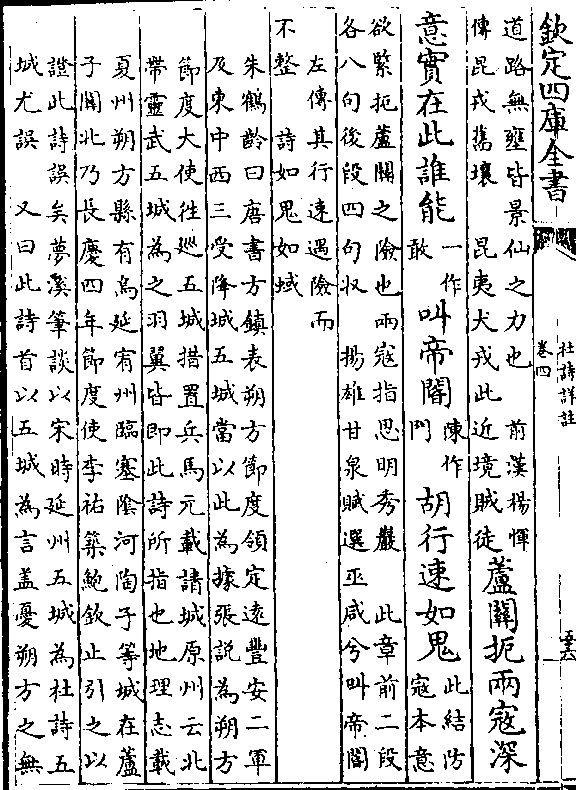 欽定四庫全書
杜詩詳註
卷四
道路無壅皆景仙之力也　前漢楊惲
傳昆戎舊壤　昆夷犬戎此近境賊徒
蘆關扼兩寇深
意實在此誰能
一作
敢
叫帝閽
陳作
門
胡行速如鬼
此結防
寇本意
欲緊扼蘆關之險也兩寇指思明秀巖　此章前二段
各八句後段四句收　揚雄甘泉賦選巫咸兮叫帝閽
左傳其行速遇險而
不整　詩如鬼如蜮
朱鶴齡曰唐書方鎮表朔方節度領定遠豐安二軍
及東中西三受降城五城當以此為據張説為朔方
節度大使往巡五城措置兵馬元載請城原州云北
帶靈武五城為之羽翼皆即此詩所指也地理志載
夏州朔方縣有烏延宥州臨塞隂河陶子等城在蘆
子關北乃長慶四年節度使李祐築鮑欽止引之以
證此詩誤矣夢溪筆談以宋時延州五城為杜詩五
城尤誤　又曰此詩首以五城為言盖憂朔方之無